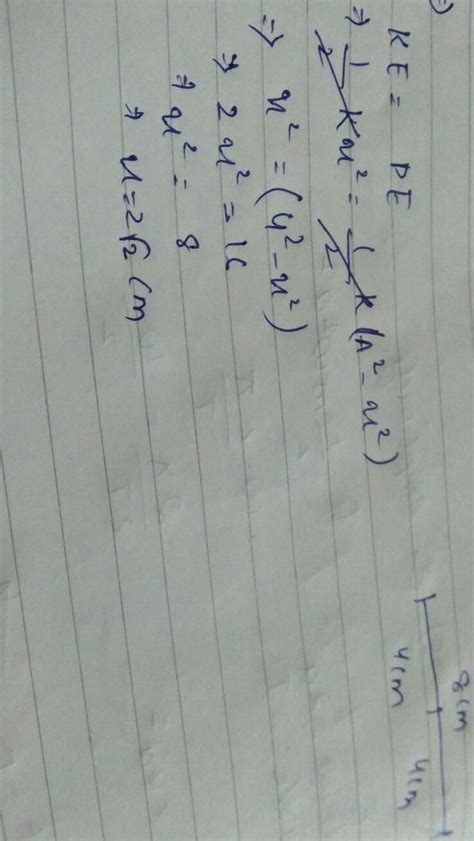 KE = PE
⇒ 1/2 Kx² = 1/2 K (A² - x²)
⇒ x² = (4² - x²)
⇒ 2x² = 16
⇒ x² = 8
⇒ x = 2√2 cm
8cm
4cm 4cm